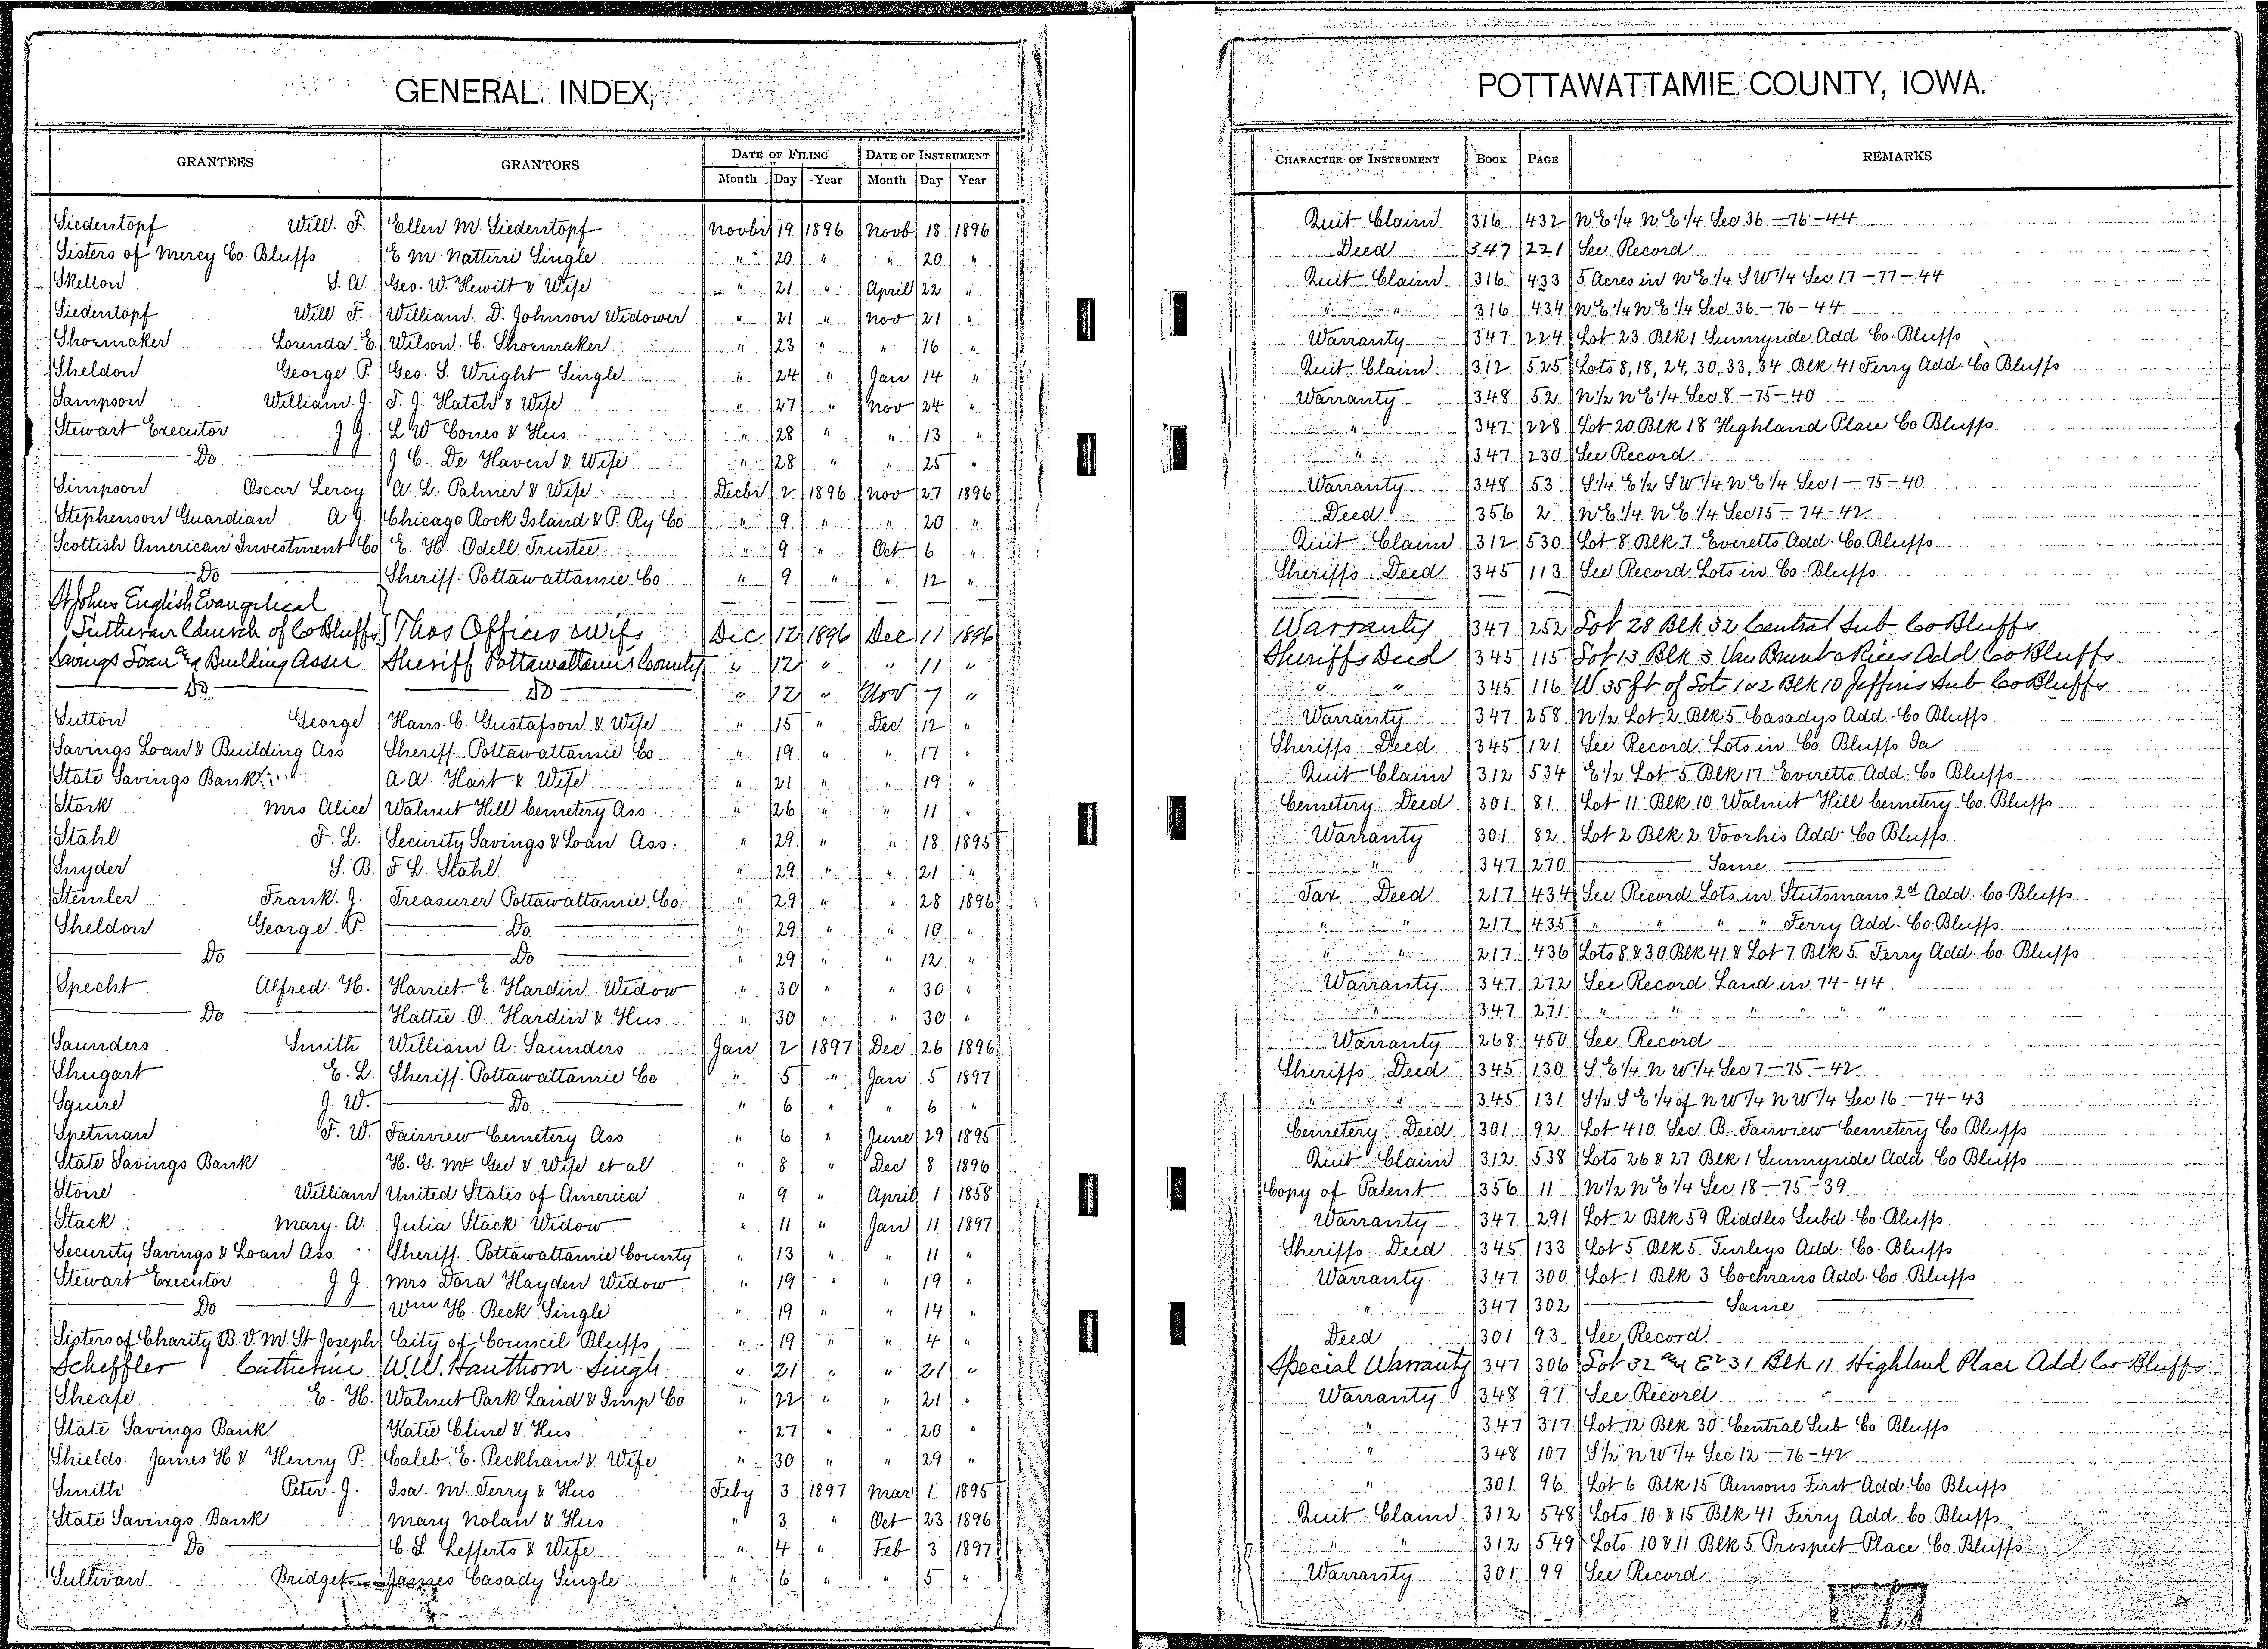 GENERAL INDEX,
GRANTEES GRANTORS DATE OF FILING DATE OF INSTRUMENT
Month Day Year Month Day Year
Siedentopf Will. F. Ellen M. Siedentopf Novbr 19 1896 Novb 18 1896
Sisters of Mercy Co. Bluffs E M. Nattini Single " 20 " " 20 "
Skelton S. A. Geo. W. Hewitt & Wife " 21 " April 22 "
Siedentopf Will F. William. D. Johnson Widower " 21 " Nov 21 "
Shoemaker Lorinda E. Wilson. C. Shoemaker " 23 " " 16 "
Sheldon George P. Geo. S. Wright Single " 24 " Jan 14 "
Sampson William. J. F. J. Hatch & Wife " 27 " Nov 24 "
Stewart Executor J J. L W Cones & Hus " 28 " " 13 "
Do J C. De Haven & Wife " 28 " " 25 "
Simpson Oscar Leroy A. L. Palmer & Wife Decbr 2 1896 Nov 27 1896
Stephenson Guardian A J. Chicago Rock Island & P. Ry Co " 9 " " 20 "
Scottish American Investment Co E. H. Odell Trustee " 9 " Oct 6 "
Do Sheriff. Pottawattamie Co " 9 " " 12 "
St Johns English Evangelical
Lutheran Church of Co Bluffs Thos Officer & wife Dec 12 1896 Dec 11 1896
Savings Loan and Building Assn Sheriff Pottawattamie County " 12 " " 11 "
Do Do " 12 " Nov 7 "
Sutton George Hans. C. Gustafson & Wife " 15 " Dec 12 "
Savings Loan & Building Ass Sheriff. Pottawattamie Co " 19 " " 17 "
State Savings Bank A A. Hart & Wife " 21 " " 19 "
Stork Mrs Alice Walnut Hill Cemetery Ass " 26 " " 11 "
Stahl F. L. Security Savings & Loan Ass. " 29 " " 18 1895
Snyder S. B. F L. Stahl " 29 " " 21 "
Stemler Frank. J. Treasurer Pottawattamie Co " 29 " " 28 1896
Sheldon George. P. Do " 29 " " 10 "
Do Do " 29 " " 12 "
Specht Alfred. H. Harriet. E. Hardin Widow " 30 " " 30 "
Do Hattie. O. Hardin & Hus " 30 " " 30 "
Saunders Smith William A. Saunders Jan 2 1897 Dec 26 1896
Shugart E. L. Sheriff. Pottawattamie Co " 5 " Jan 5 1897
Squire J. W. Do " 6 " " 6 "
Spetman F. W. Fairview Cemetery Ass " 6 " June 29 1895
State Savings Bank H. G. Mc Gee & Wife et al " 8 " Dec 8 1896
Stone William United States of America " 9 " April 1 1858
Stack Mary. A. Julia Stack Widow " 11 " Jan 11 1897
Security Savings & Loan Ass Sheriff. Pottawattamie County " 13 " " 11 "
Stewart Executor J J. Mrs Dora Hayden Widow " 19 " " 19 "
Do Wm H. Beck Single " 19 " " 14 "
Sisters of Charity B. V. M. St Joseph City of Council Bluffs " 19 " " 4 "
Scheffler Catherine W. W. Hauthorn Single " 21 " " 21 "
Sheafe E. H. Walnut Park Land & Imp Co " 22 " " 21 "
State Savings Bank Katie Cline & Hus " 27 " " 20 "
Shields. James H & Henry P. Caleb. E. Peckham & Wife " 30 " " 29 "
Smith Peter. J. Isa. M. Terry & Hus Feby 3 1897 Mar 1 1895
State Savings Bank Mary Nolan & Hus " 3 " Oct 23 1896
Do C. L. Lefferts & Wife " 4 " Feb 3 1897
Sullivan Bridget James Casady Single " 6 " " 5 "
POTTAWATTAMIE COUNTY, IOWA.
CHARACTER OF INSTRUMENT BOOK PAGE REMARKS
Quit Claim 316 432 N E 1/4 N E 1/4 Sec 36 - 76 - 44
Deed 347 221 See Record
Quit Claim 316 433 5 Acres in N E 1/4 S W 1/4 Sec 17 - 77 - 44
" " 316 434 N E 1/4 N E 1/4 Sec 36 - 76 - 44
Warranty 347 224 Lot 23 Blk 1 Sunnyside Add Co Bluffs
Quit Claim 312 525 Lots 8, 18, 24, 30, 33, 34 Blk 41 Ferry Add Co Bluffs
Warranty 348 52 N 1/2 N E 1/4 Sec 8 - 75 - 40
" 347 228 Lot 20 Blk 18 Highland Place Co Bluffs
" 347 230 See Record
Warranty 348 53 S 1/4 E 1/2 S W 1/4 N E 1/4 Sec 1 - 75 - 40
Deed 356 2 N E 1/4 N E 1/4 Sec 15 - 74 - 42
Quit Claim 312 530 Lot 8 Blk 7 Everetts Add. Co Bluffs
Sheriffs Deed 345 113 See Record Lots in Co. Bluffs
Warranty 347 252 Lot 28 Blk 32 Central Sub Co Bluffs
Sheriffs Deed 345 115 Lot 13 Blk 3 Van Brunt & Rices Add Co Bluffs
" " 345 116 W 35 ft of Lots 1 & 2 Blk 10 Jefferis Sub Co Bluffs
Warranty 347 258 N 1/2 Lot 2 Blk 5 Casadys Add. Co Bluffs
Sheriffs Deed 345 121 See Record Lots in Co Bluffs Ia
Quit Claim 312 534 E 1/2 Lot 5 Blk 17 Everetts Add. Co Bluffs
Cemetery Deed 301 81 Lot 11 Blk 10 Walnut Hill Cemetery Co. Bluffs
Warranty 301 82 Lot 2 Blk 2 Voorhis Add Co Bluffs
" 347 270 Same
Tax Deed 217 434 See Record Lots in Stutsmans 2d Add. Co Bluffs
" " 217 435 " " " " Ferry Add. Co. Bluffs
" " 217 436 Lots 8 & 30 Blk 41 & Lot 7 Blk 5 Ferry Add. Co. Bluffs
Warranty 347 272 See Record Land in 74 - 44
" 347 271 " " " " " "
Warranty 268 450 See Record
Sheriffs Deed 345 130 S E 1/4 N W 1/4 Sec 7 - 75 - 42
" " 345 131 S 1/2 S E 1/4 of N W 1/4 N W 1/4 Sec 16 - 74 - 43
Cemetery Deed 301 92 Lot 410 Sec B. Fairview Cemetery Co Bluffs
Quit Claim 312 538 Lots 26 & 27 Blk 1 Sunnyside Add Co Bluffs
Copy of Patent 356 11 N 1/2 N E 1/4 Sec 18 - 75 - 39
Warranty 347 291 Lot 2 Blk 59 Riddles Subd. Co. Bluffs
Sheriffs Deed 345 133 Lot 5 Blk 5 Turleys Add. Co. Bluffs
Warranty 347 300 Lot 1 Blk 3 Cochrans Add. Co. Bluffs
" 347 302 Same
Deed 301 93 See Record
Special Warranty 347 306 Lot 32 and E 1/2 31 Blk 11 Highland Place Add Co Bluffs
Warranty 348 97 See Record
" 347 317 Lot 12 Blk 30 Central Sub Co Bluffs
" 348 107 S 1/2 N W 1/4 Sec 12 - 76 - 42
" 301 96 Lot 6 Blk 15 Bensons First Add. Co Bluffs
Quit Claim 312 548 Lots 10 & 15 Blk 41 Ferry Add Co. Bluffs
" " 312 549 Lots 10 & 11 Blk 5 Prospect Place Co. Bluffs
Warranty 301 99 See Record